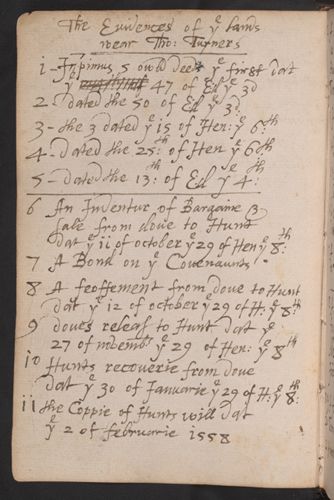 The Euidences of yͤ lands
near Tho: Turners
1 - Inprimus 5 owld deeds yͤ first dat
yͤ 47 of Ed yͤ 3ᵈ
2 - Dated the 50 of Ed yͤ 3ᵈ
3 - the 3 dated yͤ 15 of Hen: yͤ 6ᵗʰ
4 - dated the 25ᵗʰ of Hen yͤ 6ᵗʰ
5 - dated the 13ᵗʰ: of Ed yͤ 4ᵗʰ:
6 An Indentur of Bargaine &
sale from doue to Hunt
dat yͤ 11 of october yͤ 29 of Hen yͤ 8ᵗʰ:
7 A Bond on yͤ Couenaunts
8 A feoffement from doue to Hunt
dat yͤ 12 of october yͤ 29 of H: yͤ 8ᵗʰ
9 doues releas to Hunt dat yͤ
27 of nouemb yͤ 29 of Hen: yͤ 8ᵗʰ
10 Hunts recouerie from doue
dat yͤ 30 of Januarie yͤ 29 of H: yͤ 8ᵗʰ:
11 the Coppie of Hunts will dat
yͤ 2 of februarie 1558